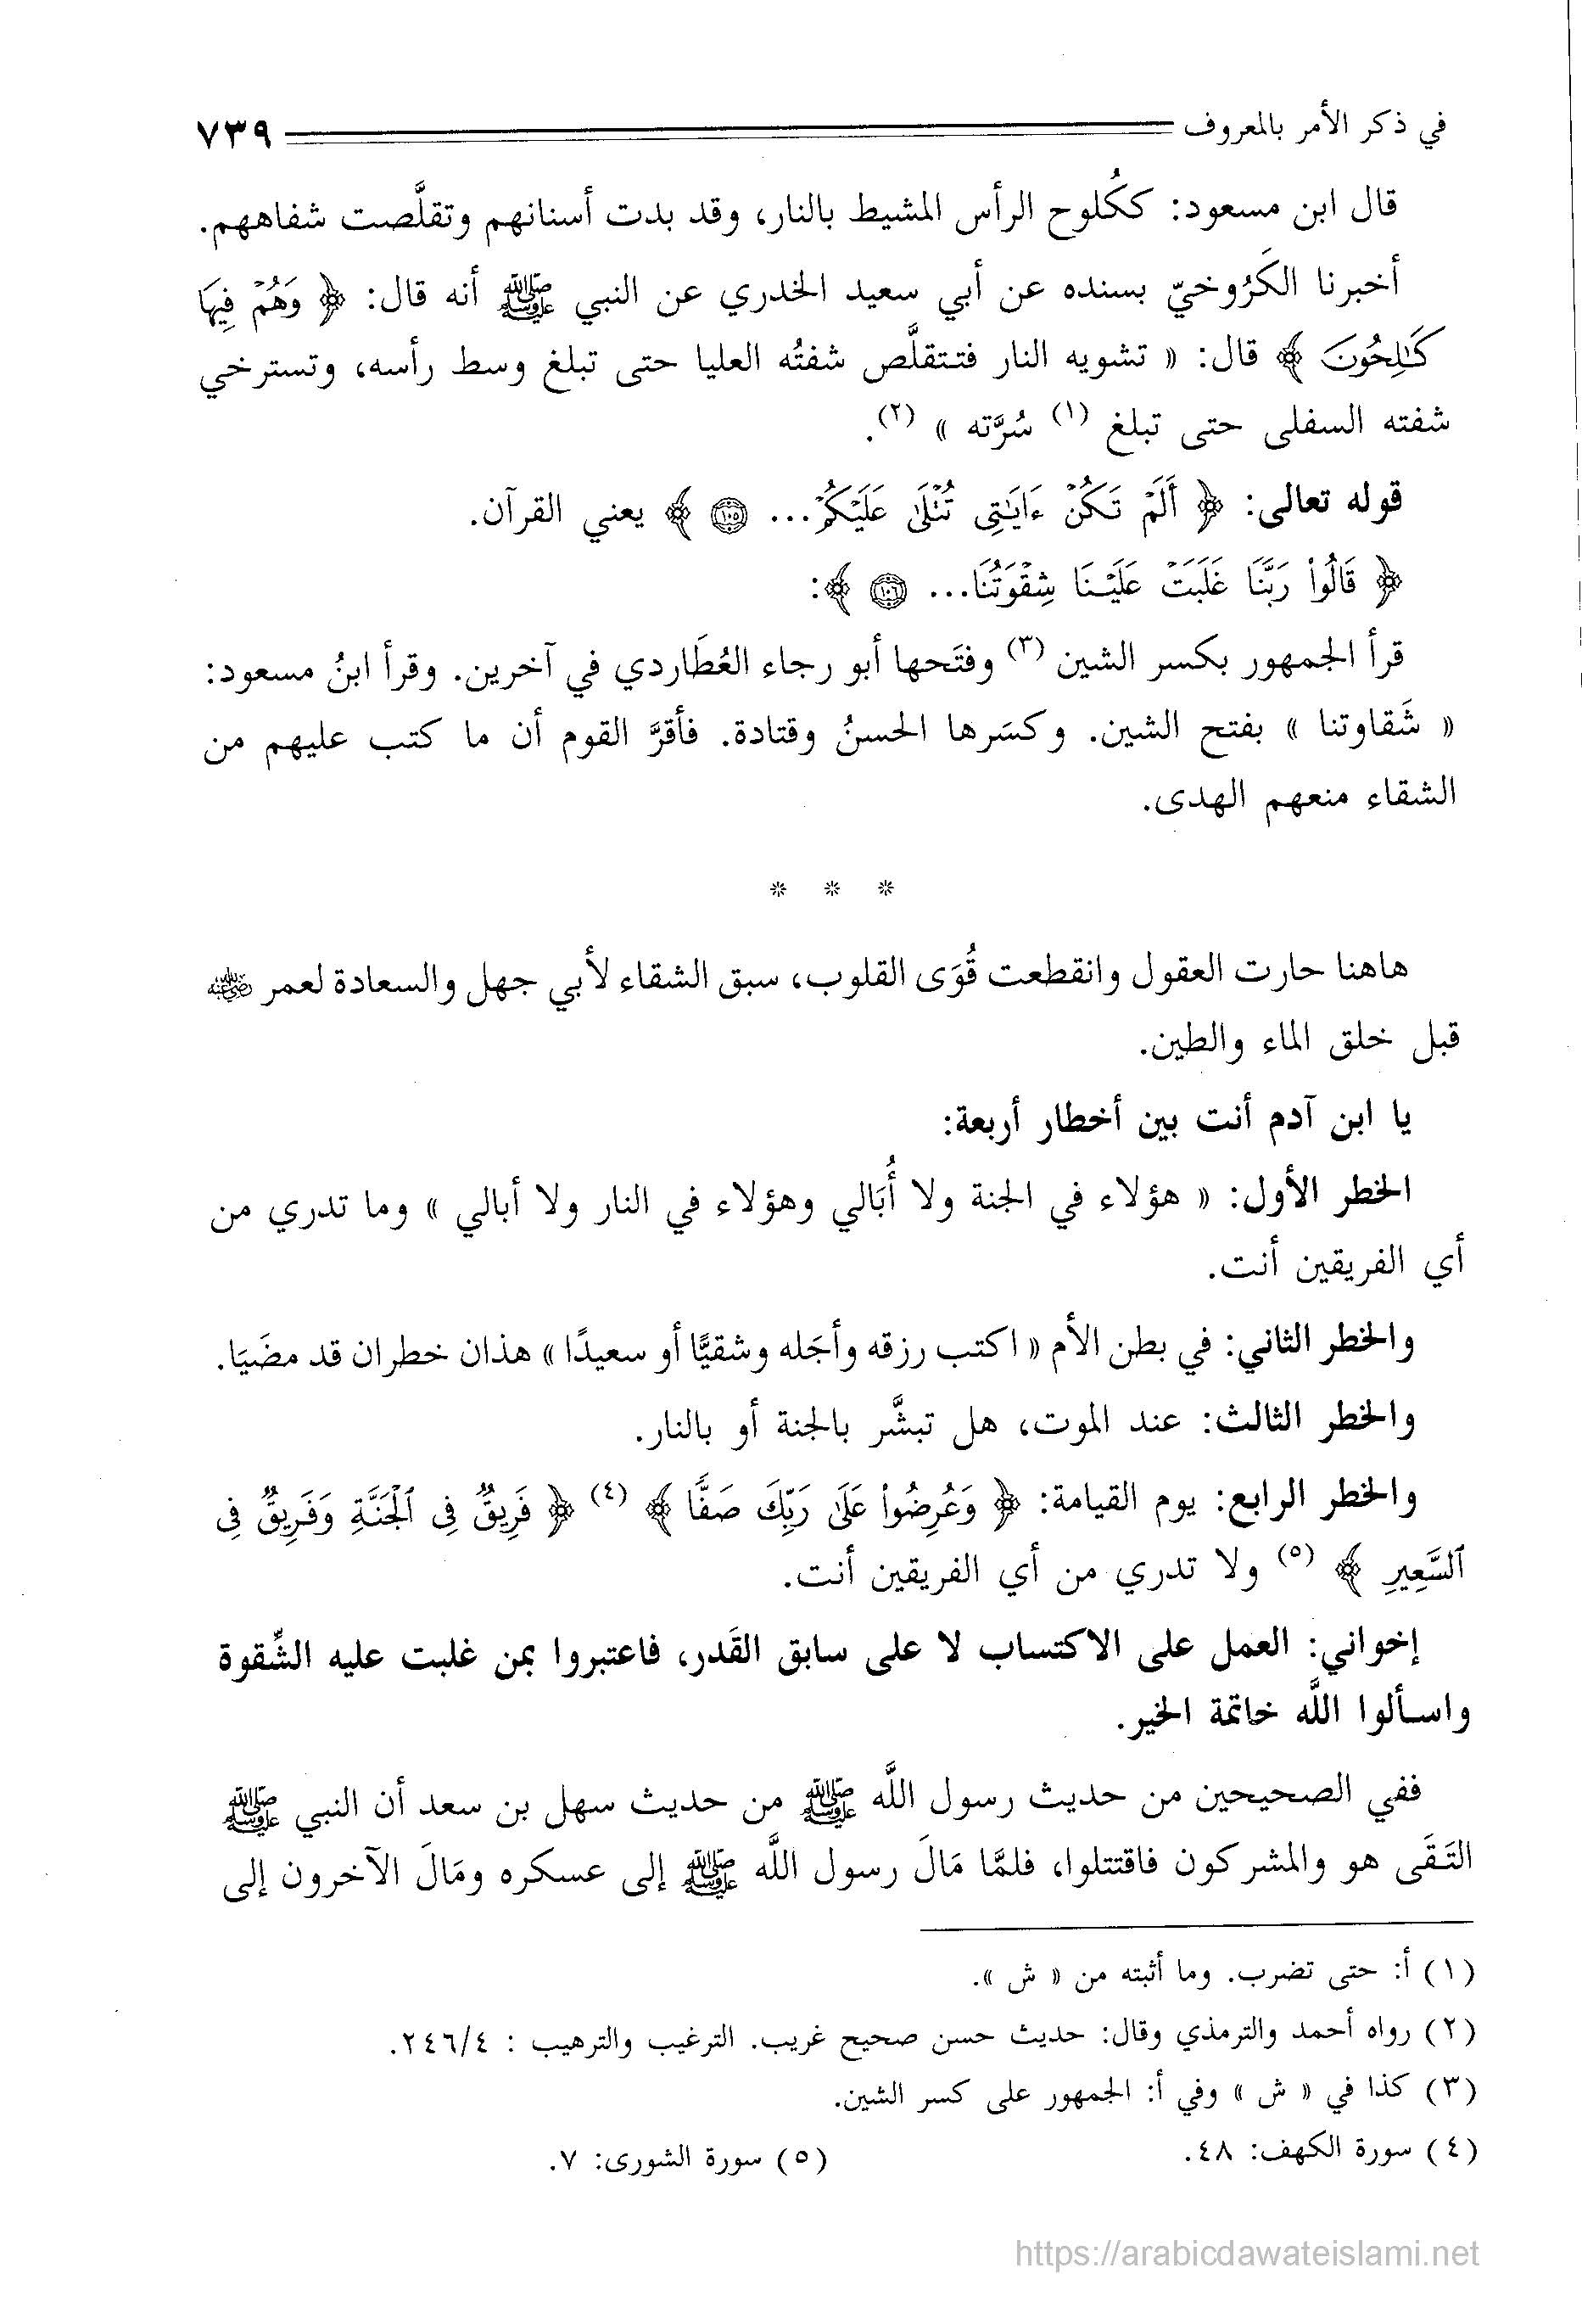 في ذكر الأمر بالمعروف ٧٣٩
قال ابن مسعود: ككُلوح الرأس المشيط بالنار، وقد بدت أسنانهم وتقلَّصت شفاههم.
أخبرنا الكَرُوخيّ بسنده عن أبي سعيد الخدري عن النبي ﷺ أنه قال: ﴿ وَهُمْ فِيهَا
كَٰلِحُونَ ﴾ قال: « تشويه النار فتتقلَّص شفتُه العليا حتى تبلغ وسط رأسه، وتسترخي
شفته السفلى حتى تبلغ (١) سُرَّته » (٢).
قوله تعالى: ﴿ أَلَمْ تَكُنْ ءَايَٰتِى تُتْلَىٰ عَلَيْكُمْ... ١٠٥ ﴾ يعني القرآن.
﴿ قَالُوا۟ رَبَّنَا غَلَبَتْ عَلَيْنَا شِقْوَتُنَا... ١٠٦ ﴾:
قرأ الجمهور بكسر الشين (٣) وفتَحها أبو رجاء العُطَاردي في آخرين. وقرأ ابنُ مسعود:
« شَقاوتنا » بفتح الشين. وكسَرها الحسنُ وقتادة. فأقرَّ القوم أن ما كتب عليهم من
الشقاء منعهم الهدى.
* * *
هاهنا حارت العقول وانقطعت قُوَى القلوب، سبق الشقاء لأبي جهل والسعادة لعمر رضي الله عنه
قبل خلق الماء والطين.
يا ابن آدم أنت بين أخطار أربعة:
الخطر الأول: « هؤلاء في الجنة ولا أُبَالي وهؤلاء في النار ولا أبالي » وما تدري من
أي الفريقين أنت.
والخطر الثاني: في بطن الأم « اكتب رزقه وأجَله وشقيًّا أو سعيدًا » هذان خطران قد مضَيَا.
والخطر الثالث: عند الموت، هل تبشَّر بالجنة أو بالنار.
والخطر الرابع: يوم القيامة: ﴿ وَعُرِضُوا۟ عَلَىٰ رَبِّكَ صَفًّا ﴾ (٤) ﴿ فَرِيقٌ فِى ٱلْجَنَّةِ وَفَرِيقٌ فِى
ٱلسَّعِيرِ ﴾ (٥) ولا تدري من أي الفريقين أنت.
إخواني: العمل على الاكتساب لا على سابق القَدر، فاعتبروا بمن غلبت عليه الشِّقوة
واسألوا اللَّه خاتمة الخير.
ففي الصحيحين من حديث رسول اللَّه ﷺ من حديث سهل بن سعد أن النبي ﷺ
التَقَى هو والمشركون فاقتتلوا، فلمَّا مَالَ رسول اللَّه ﷺ إلى عسكره ومَالَ الآخرون إلى
(١) أ: حتى تضرب. وما أثبته من « ش ».
(٢) رواه أحمد والترمذي وقال: حديث حسن صحيح غريب. الترغيب والترهيب : ٢٤٦/٤.
(٣) كذا في « ش » وفي أ: الجمهور على كسر الشين.
(٤) سورة الكهف: ٤٨. (٥) سورة الشورى: ٧.
https://arabicdawateislami.net